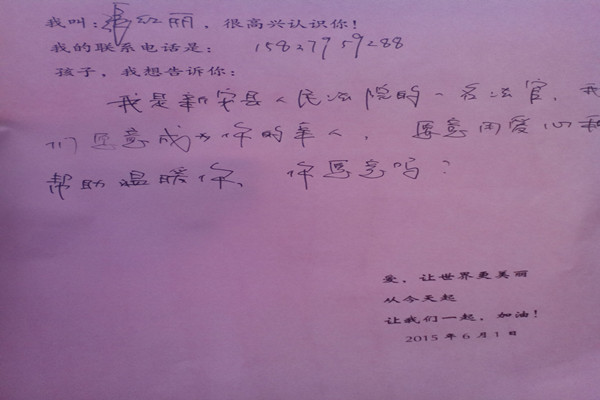 我叫：红丽，很高兴认识你！
我的联系电话是：15827959288
孩子，我想告诉你：
我是新安县人民法院的一名法官，我
们愿意成为你的亲人，愿意用爱心和
帮助温暖你，你愿意吗？
爱，让世界更美丽
从今天起
让我们一起，加油！
2015年6月1日